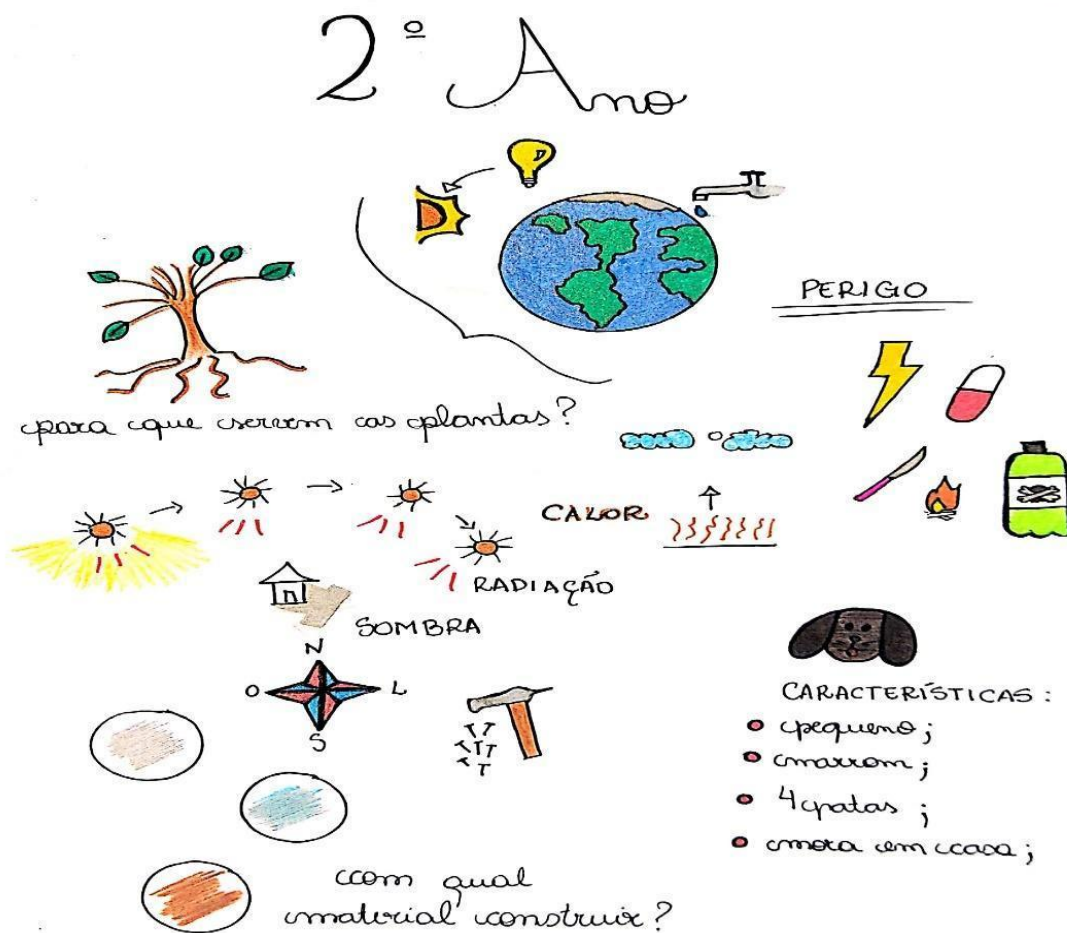 2º Ano
PERIGO
para que servem as plantas?
CALOR
RADIAÇÃO
SOMBRA
N
O L
S
CARACTERÍSTICAS:
pequeno;
marrom;
4 patas;
mora em casa;
com qual
material construir?